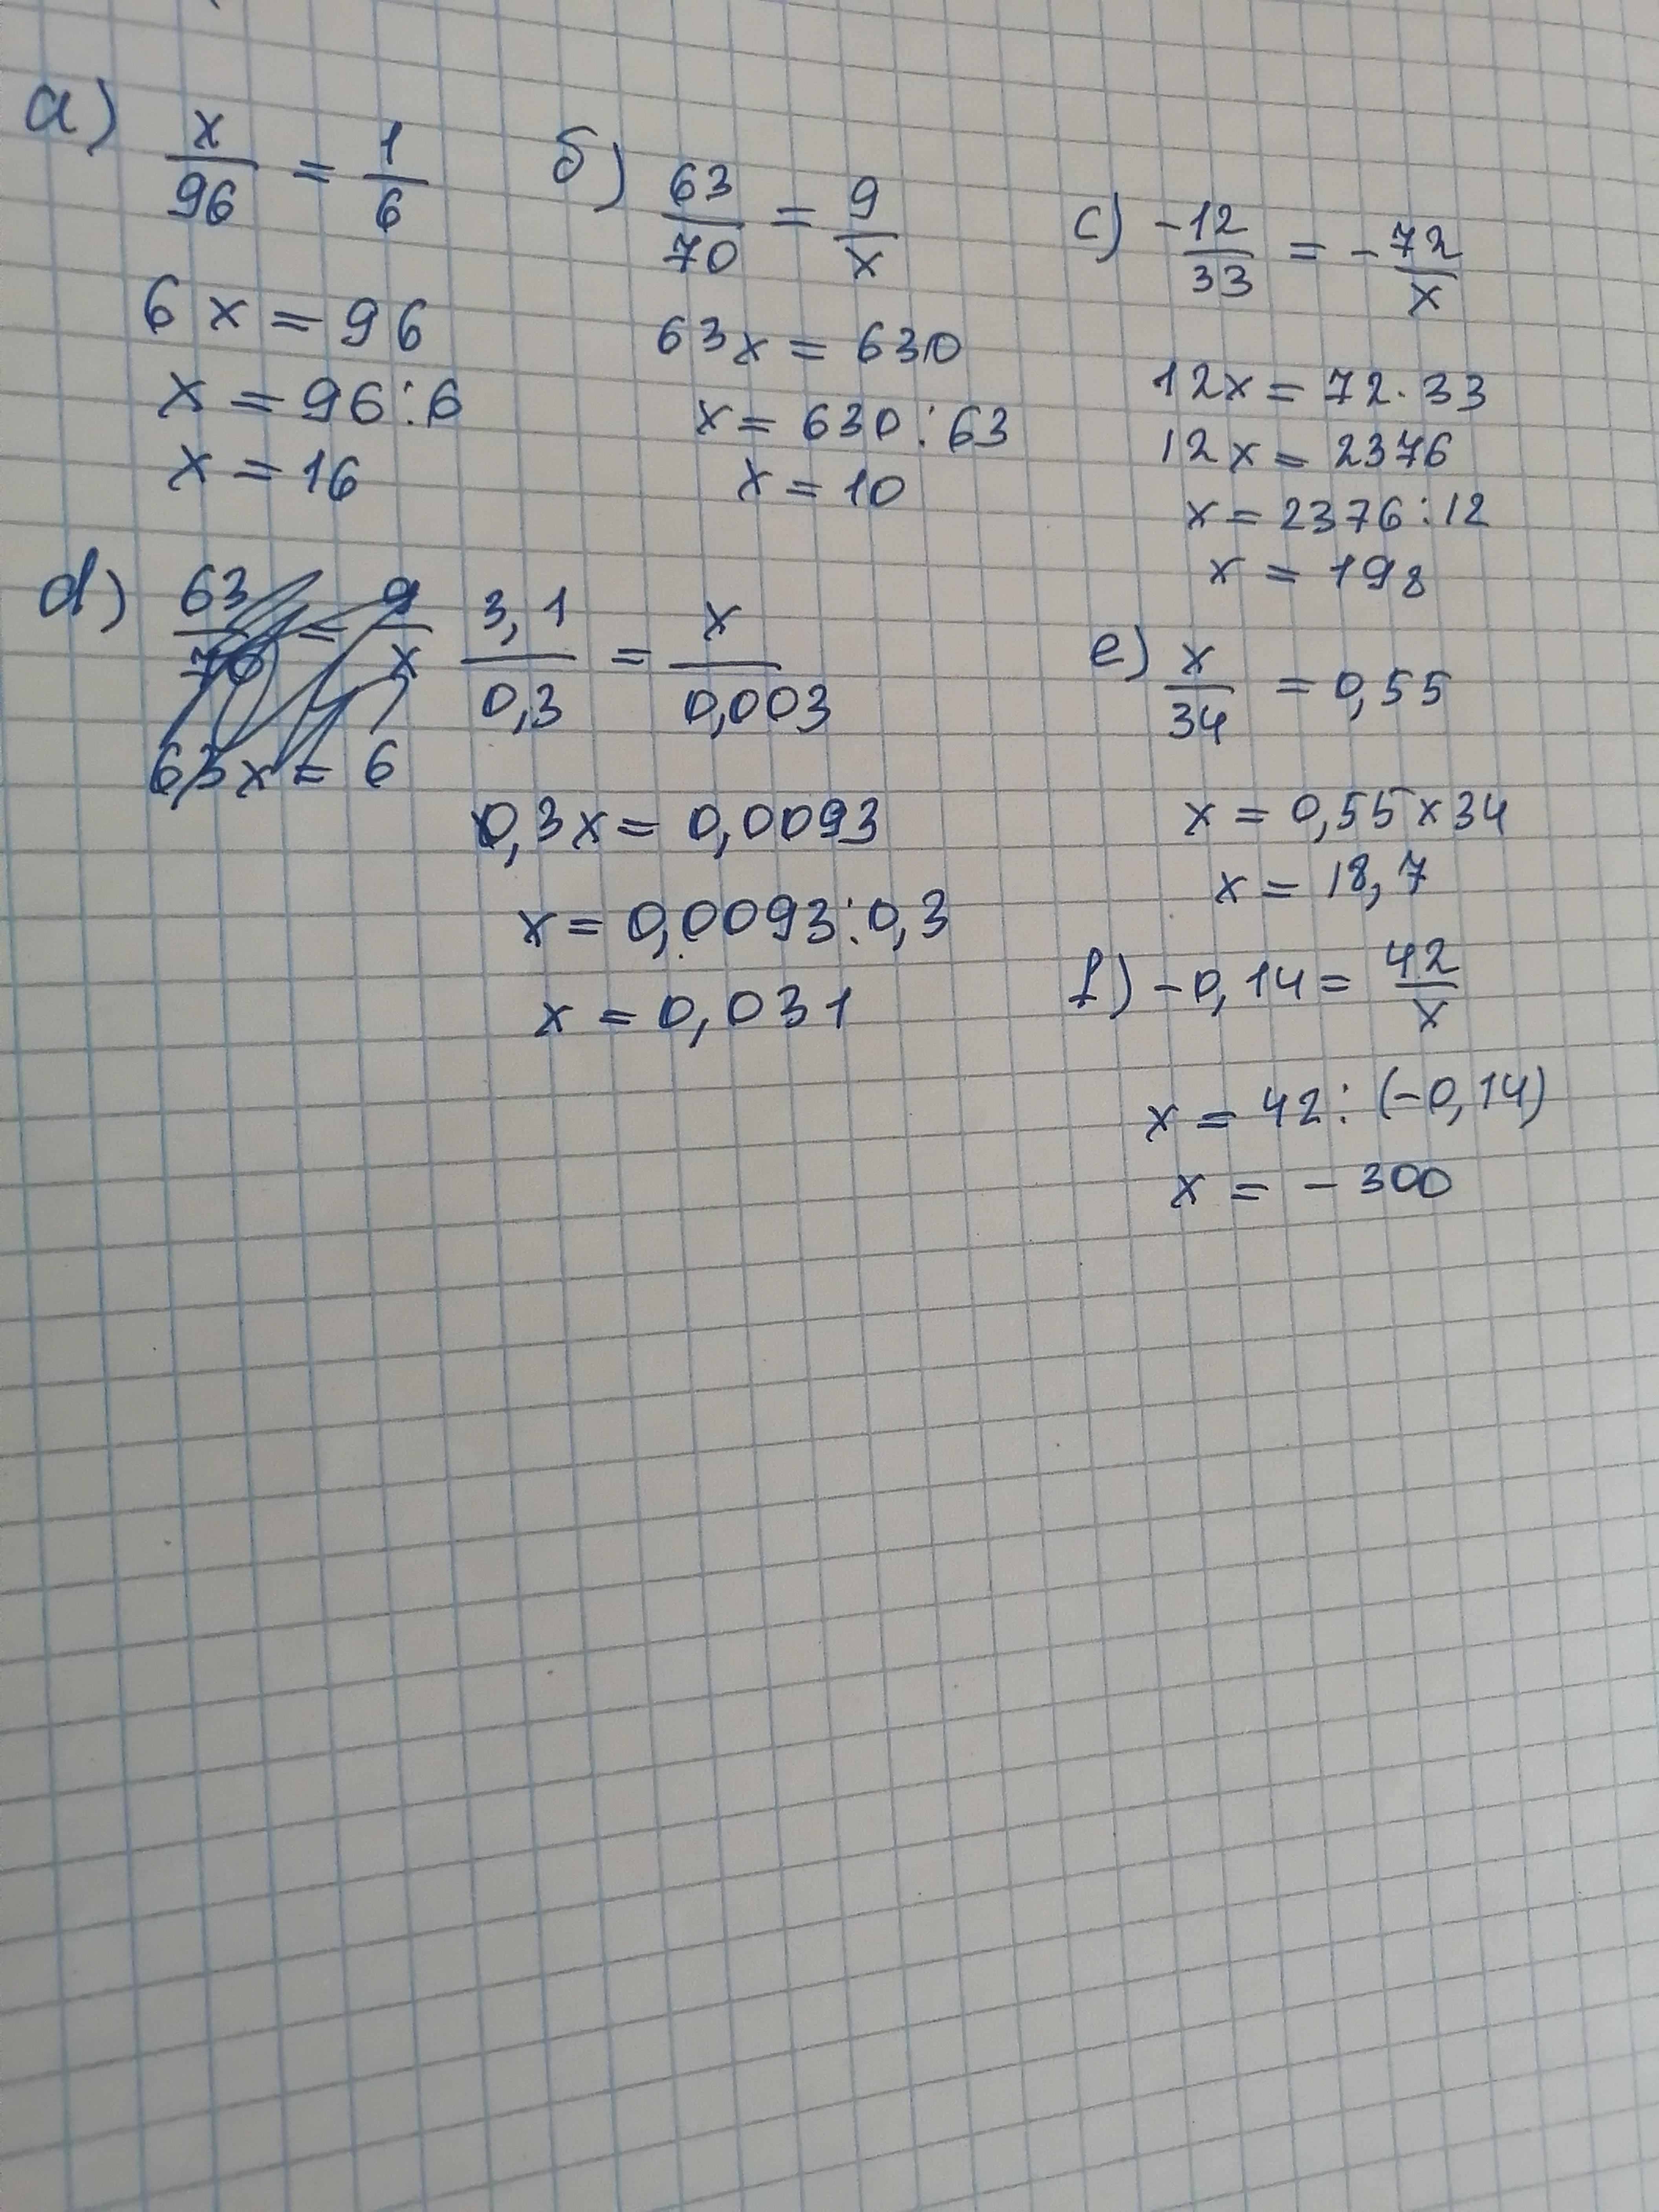 а) x/96 = 1/6
6x = 96
x = 96:6
x = 16
б) 63/70 = 9/x
63x = 630
x = 630:63
x = 10
c) -12/33 = -72/x
12x = 72·33
12x = 2376
x = 2376:12
x = 198
d) 63/70 = 9/x
63x = 6
3,1/0,3 = x/0,003
0,3x = 0,0093
x = 0,0093:0,3
x = 0,031
e) x/34 = 0,55
x = 0,55x34
x = 18,7
f) -0,14 = 42/x
x = 42:(-0,14)
x = -300